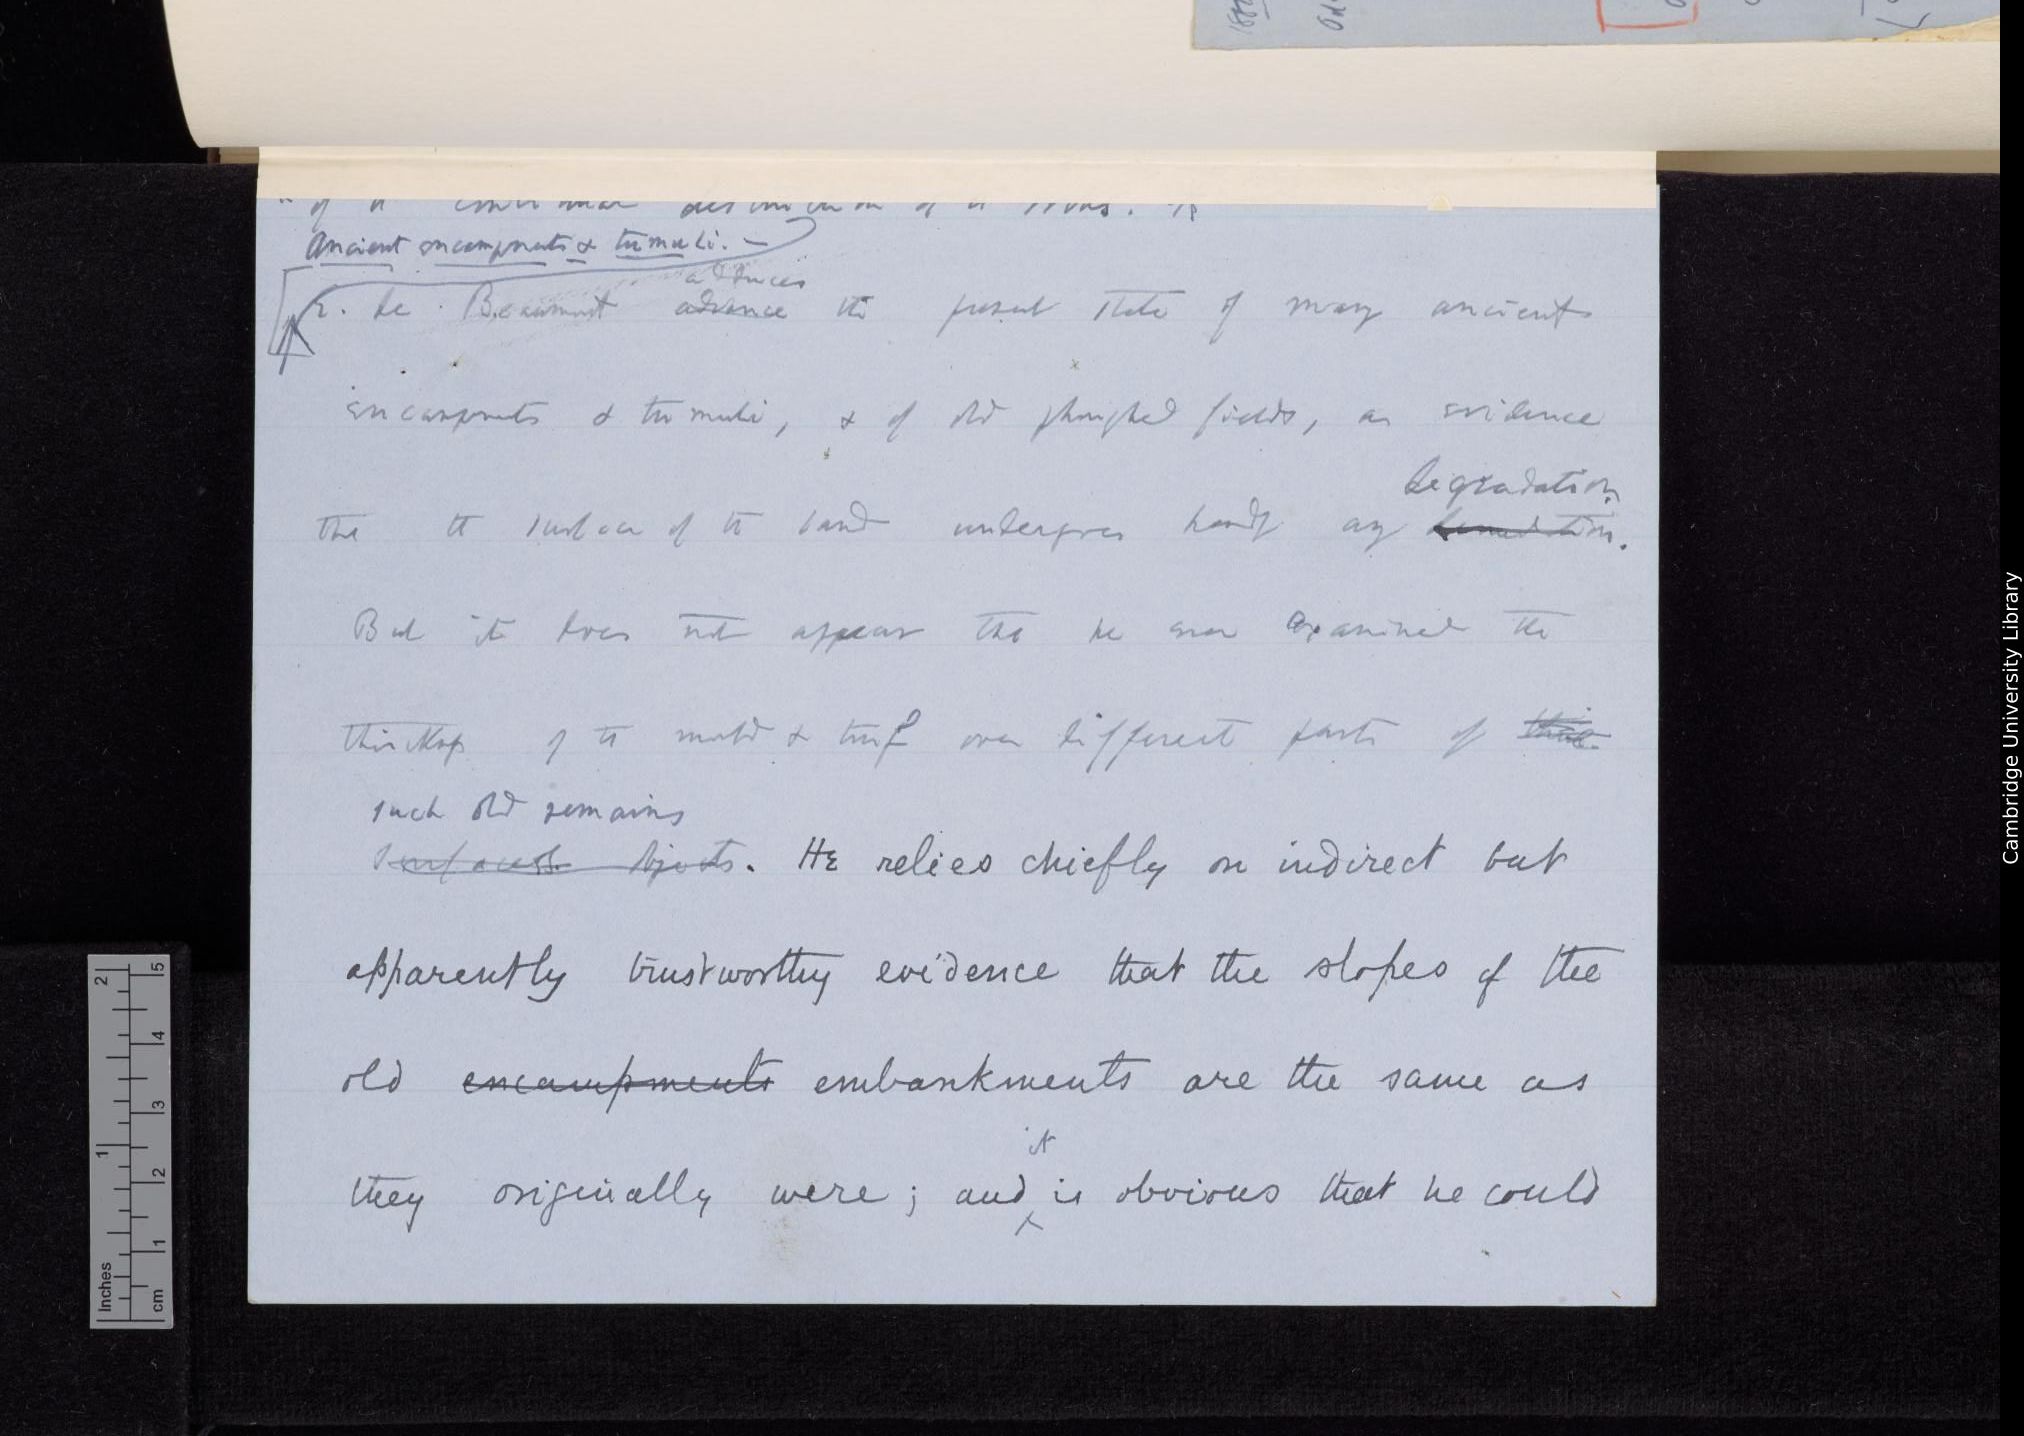 Ancient encampments & tumuli. —
adduces
E. de Beaumont advance the present state of many ancient
encampments & tumuli, & of old ploughed fields, as evidence
degradation
tha tt surface of tt land undergoes hardly any denudation.
But it does not appear tha he ever examined the
thickness of tt mould & turf over different parts of
such old remains
surfaces objects. He relies chiefly on indirect but
apparently trustworthy evidence that the slopes of the
old encampments embankments are the same as
it
they originally were; and is obvious that he could
Cambridge University Library
Inches
1
2
cm
1
2
3
4
5